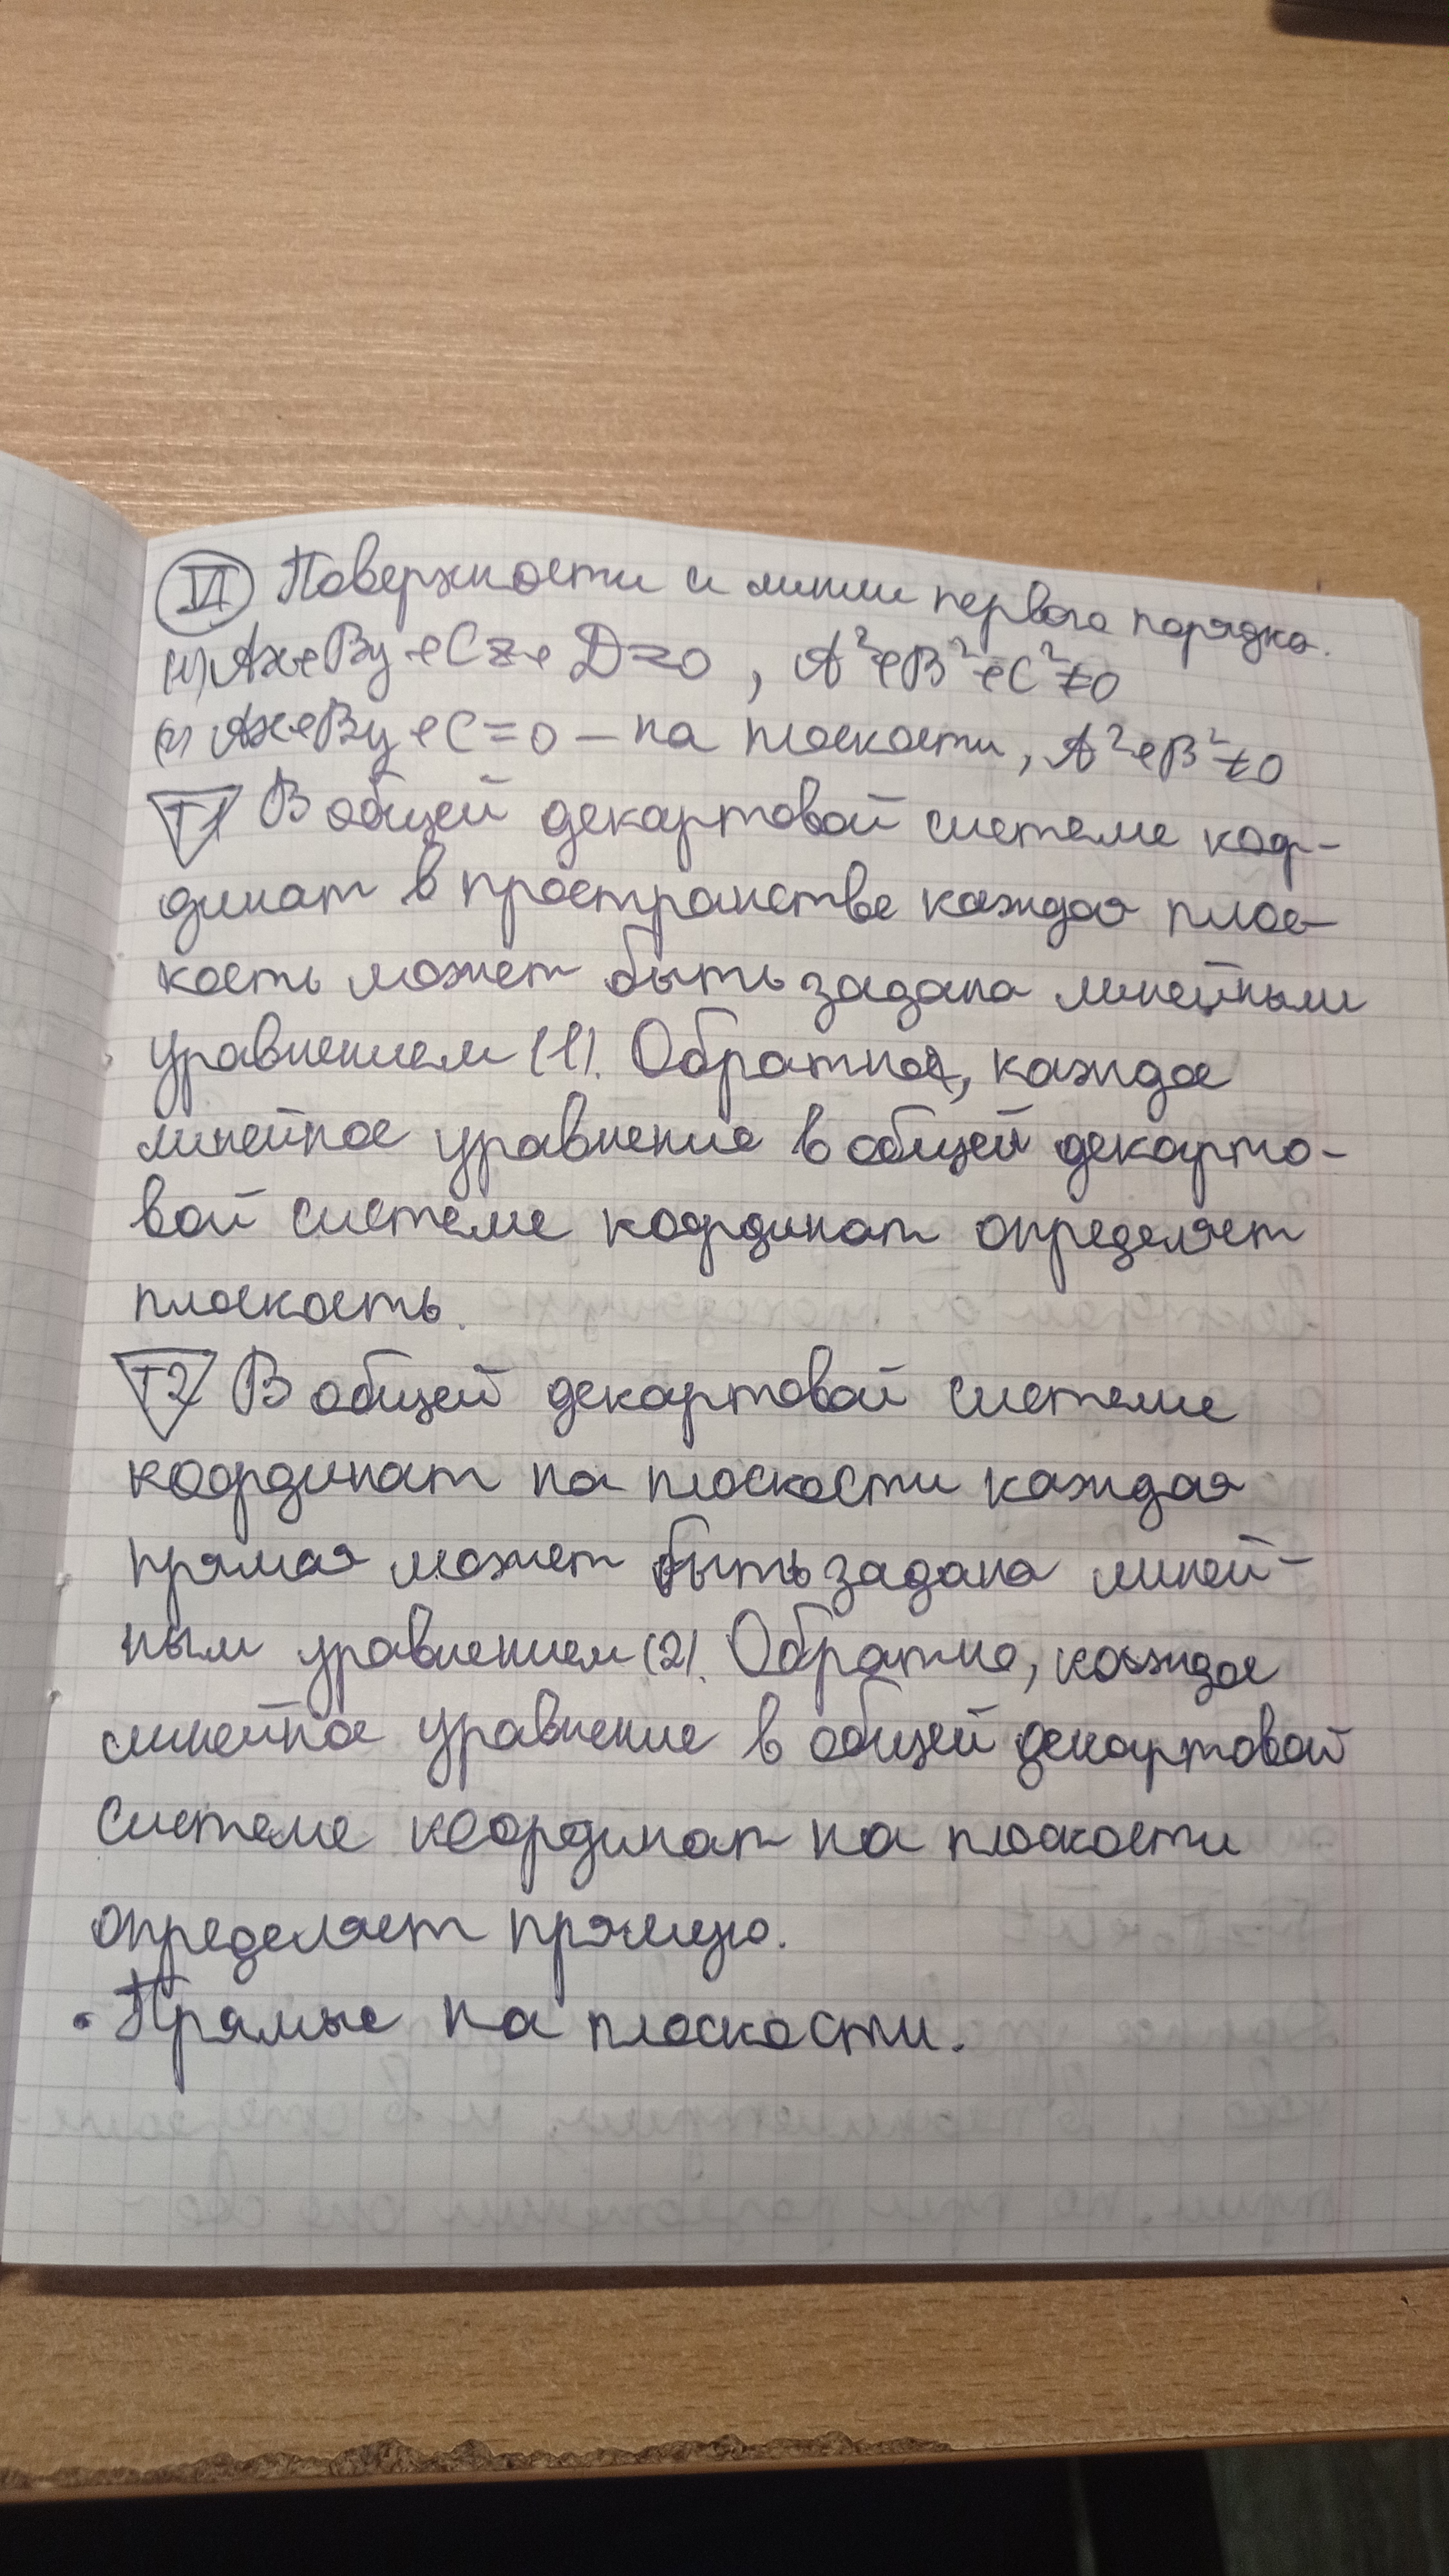 VI Поверхности и линии первого порядка.
(1) Ax+By+Cz+D=0, A²+B²+C²≠0
(2) Ax+By+C=0 – на плоскости, A²+B²≠0
T1 В общей декартовой системе коор-
динат в пространстве каждая плос-
кость может быть задана линейным
уравнением (1). Обратно, каждое
линейное уравнение в общей декарто-
вой системе координат определяет
плоскость.
T2 В общей декартовой системе
координат на плоскости каждая
прямая может быть задана линей-
ным уравнением (2). Обратно, каждое
линейное уравнение в общей декартовой
системе координат на плоскости
определяет прямую.
• Прямые на плоскости.